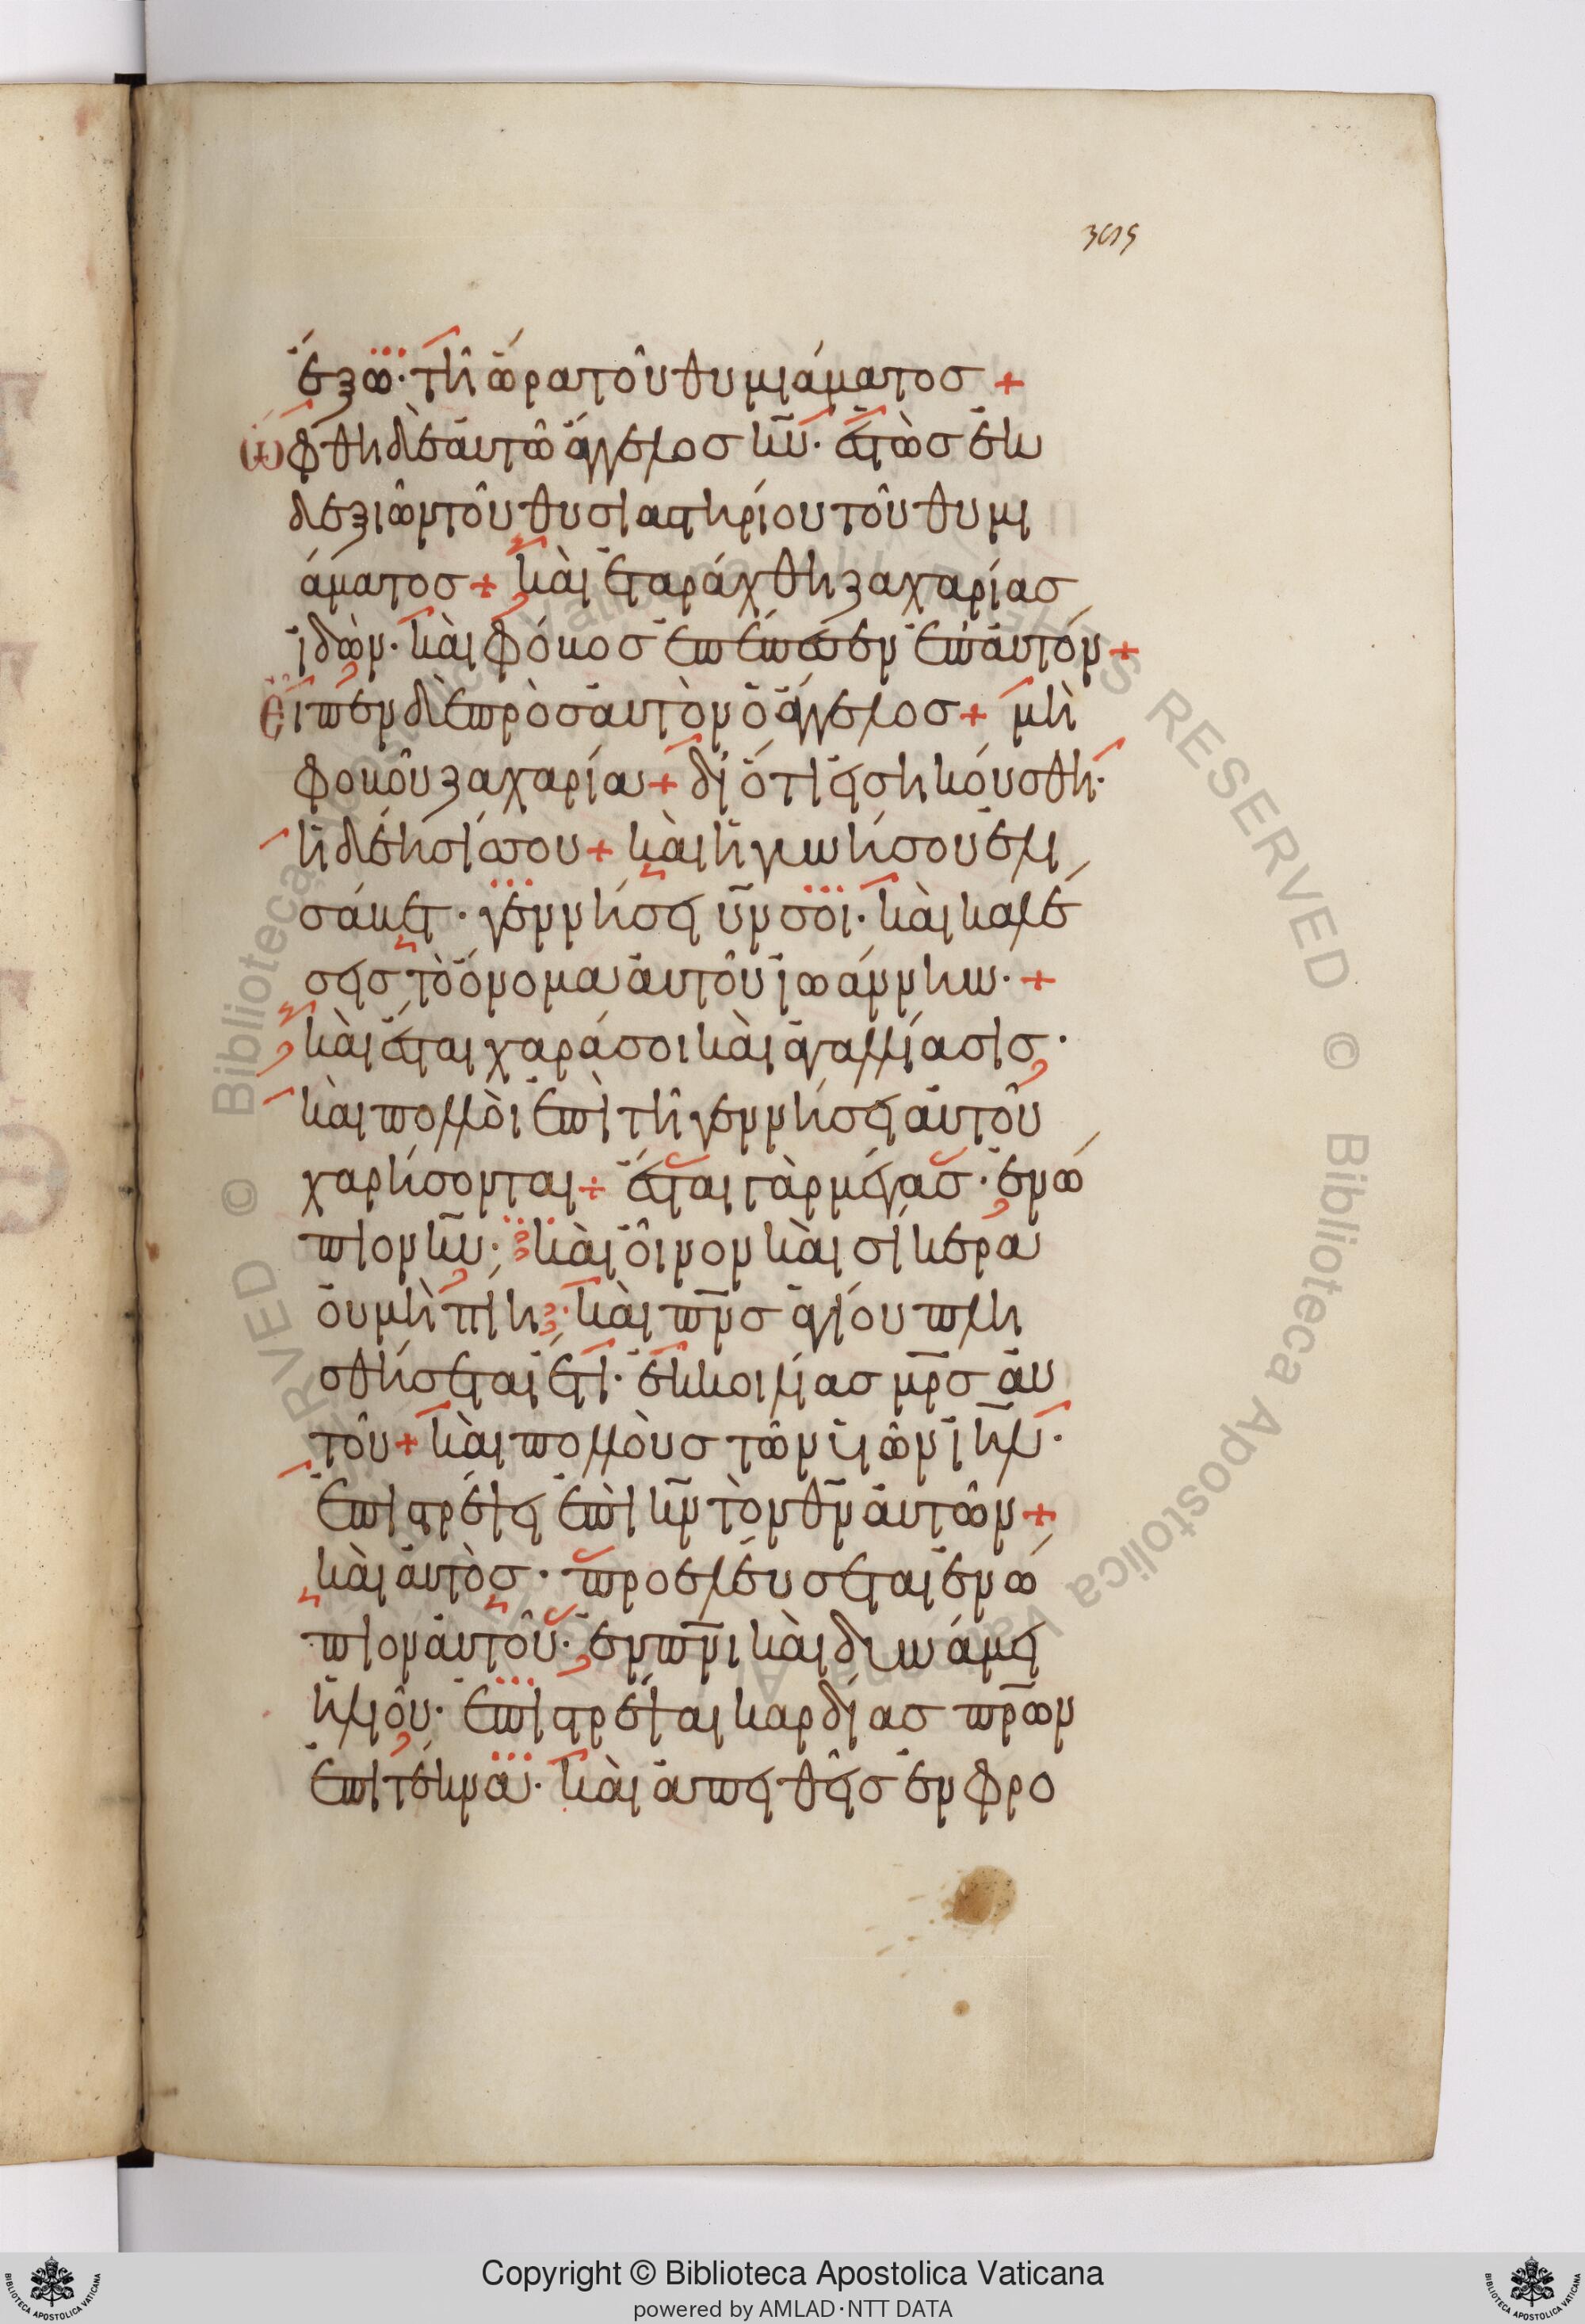 ἔξω· τῆ ὥρα τοῦ θυμιάματος +
ὤφθη δὲ αὐτῶ ἄγγελος κυ· ἑστὼς ἐκ
δεξιῶν τοῦ θυσιαστηρίου τοῦ θυμι
άματος + καὶ ἐταράχθη ζαχαρίας
ἰδὼν· καὶ φόβος ἐπέπεσεν ἐπ' αὐτόν +
Εἶπεν δὲ πρὸς αὐτὸν ὁ ἄγγελος + μὴ
φοβοῦ ζαχαρία + διότι εἰσηκούσθη·
ἡ δέησίς σου + καὶ ἡ γυνή σου ἐλι
σάβετ· γεννήσει υν σοι· καὶ καλέ
σεις τὸ ὄνομα αὐτοῦ ἰωάννην· +
καὶ ἔσται χαρά σοι καὶ ἀγαλλίασις·
καὶ πολλοὶ ἐπὶ τῆ γεννήσει αὐτοῦ
χαρήσονται + ἔσται γὰρ μέγας· ἐνώ
πιον κυ· καὶ οἶνον καὶ σίκερα
οὐ μὴ πίη· καὶ πνς ἁγίου πλη
σθήσεται ἔτι· ἐκ κοιλίας μρς αὐ
τοῦ + καὶ πολλοὺς τῶν υἱῶν ιηλ·
ἐπιστρέψει ἐπὶ κν τὸν θν αὐτῶν +
καὶ αὐτὸς· προελεύσεται ἐνώ
πιον αὐτοῦ· ἐν πνι καὶ δυνάμει
ἡλιοῦ· ἐπιστρέψαι καρδίας πρων
ἐπὶ τέκνα· καὶ ἀπειθεῖς ἐν φρο
Copyright © Biblioteca Apostolica Vaticana
powered by AMLAD·NTT DATA